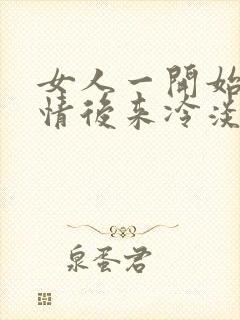 女人一開始
情後來冷淡
泉蛋君